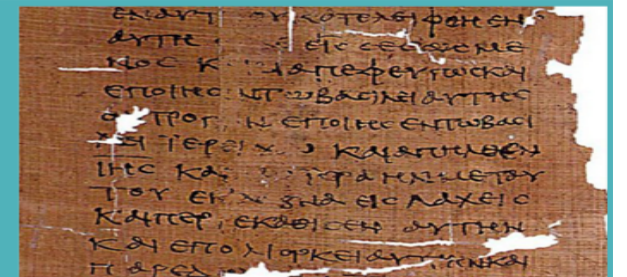 ΕΝ ΑΥΤ ΟΥ ΚΟΤΕΛΕΙΦΘΗ ΕΝ
ΑΥΤΗ ΕΙΣ ΣΕΣΩΣΜΕ
ΝΟΣ Κ ΙΑΠΕΦΕΥΓΩΣ ΚΑΙ
ΕΠΟΙΗΣ Ν ΤΩ ΒΑΣΙΛΕΙ ΑΥΤΗΣ
Ο ΤΡΟΠ Ν ΕΠΟΙΗΣΕΝ ΤΩ ΒΑΣΙ
ΛΕΙ ΙΕΡΕΙΧ ΚΑΙ ΑΠΗΛΘΕΝ
ΙΗΣ ΚΑΙ ΡΑΗΛ ΜΕΤ ΑΥ
ΤΟΥ ΕΚ ΝΑ ΕΙΣ ΛΑΧΕΙΣ
ΚΑΙ ΠΕΡΙΕΚΑΘΙΣΕΝ ΑΥΤΗΝ
ΚΑΙ ΕΠΟΛΙΟΡΚΕΙ ΑΥΤΗΝ ΚΑΙ
ΠΑΡΕΔ